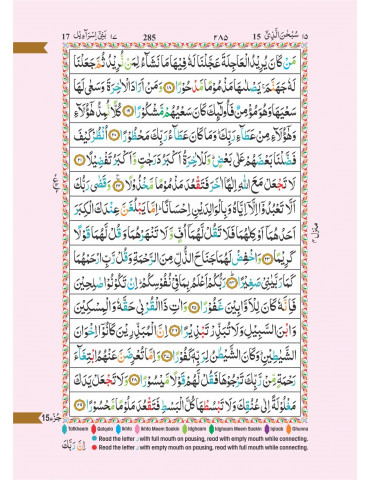 17 بَنِیْۤ اِسْرَآءِیْل ۱۷ 285 ۲۸۵ 15 سُبْحٰنَ الَّذِیْۤ ۱۵
مَنْ كَانَ یُرِیْدُ الْعَاجِلَةَ عَجَّلْنَا لَهٗ فِیْهَا مَا نَشَآءُ لِمَنْ نُّرِیْدُ ثُمَّ جَعَلْنَا
لَهٗ جَهَنَّمَ ۚ یَصْلٰىهَا مَذْمُوْمًا مَّدْحُوْرًا ۝۱۸ وَمَنْ اَرَادَ الْاٰخِرَةَ وَسَعٰی لَهَا
سَعْیَهَا وَهُوَ مُؤْمِنٌ فَاُولٰٓىِٕكَ كَانَ سَعْیُهُمْ مَّشْكُوْرًا ۝۱۹ كُلًّا نُّمِدُّ هٰۤؤُلَآءِ
وَهٰۤؤُلَآءِ مِنْ عَطَآءِ رَبِّكَ ؕ وَمَا كَانَ عَطَآءُ رَبِّكَ مَحْظُوْرًا ۝۲۰ اُنْظُرْ كَیْفَ
فَضَّلْنَا بَعْضَهُمْ عَلٰی بَعْضٍ ؕ وَلَلْاٰخِرَةُ اَكْبَرُ دَرَجٰتٍ وَّاَكْبَرُ تَفْضِیْلًا ۝۲۱
لَا تَجْعَلْ مَعَ اللّٰهِ اِلٰهًا اٰخَرَ فَتَقْعُدَ مَذْمُوْمًا مَّخْذُوْلًا ۝۲۲ وَقَضٰی رَبُّكَ
اَلَّا تَعْبُدُوْۤا اِلَّاۤ اِیَّاهُ وَبِالْوَالِدَیْنِ اِحْسَانًا ؕ اِمَّا یَبْلُغَنَّ عِنْدَكَ الْكِبَرَ
اَحَدُهُمَاۤ اَوْ كِلٰهُمَا فَلَا تَقُلْ لَّهُمَاۤ اُفٍّ وَّلَا تَنْهَرْهُمَا وَقُلْ لَّهُمَا قَوْلًا
كَرِیْمًا ۝۲۳ وَاخْفِضْ لَهُمَا جَنَاحَ الذُّلِّ مِنَ الرَّحْمَةِ وَقُلْ رَّبِّ ارْحَمْهُمَا
كَمَا رَبَّیٰنِیْ صَغِیْرًا ۝۲۴ رَبُّكُمْ اَعْلَمُ بِمَا فِیْ نُفُوْسِكُمْ ؕ اِنْ تَكُوْنُوْا صٰلِحِیْنَ
فَاِنَّهٗ كَانَ لِلْاَوَّابِیْنَ غَفُوْرًا ۝۲۵ وَاٰتِ ذَا الْقُرْبٰی حَقَّهٗ وَالْمِسْكِیْنَ
وَابْنَ السَّبِیْلِ وَلَا تُبَذِّرْ تَبْذِیْرًا ۝۲۶ اِنَّ الْمُبَذِّرِیْنَ كَانُوْۤا اِخْوَانَ
الشَّیٰطِیْنِ ؕ وَكَانَ الشَّیْطٰنُ لِرَبِّهٖ كَفُوْرًا ۝۲۷ وَاِمَّا تُعْرِضَنَّ عَنْهُمُ ابْتِغَآءَ
رَحْمَةٍ مِّنْ رَّبِّكَ تَرْجُوْهَا فَقُلْ لَّهُمْ قَوْلًا مَّیْسُوْرًا ۝۲۸ وَلَا تَجْعَلْ یَدَكَ
مَغْلُوْلَةً اِلٰی عُنُقِكَ وَلَا تَبْسُطْهَا كُلَّ الْبَسْطِ فَتَقْعُدَ مَلُوْمًا مَّحْسُوْرًا ۝۲۹
منزل ۴
15 جُزْء
Tafkheem Qalqala Ikhfa Ikhfa Meem Saakin Idgham Idgham Meem Saakin Iqlaab Ghunna
Read the letter ر with full mouth on pausing, read with empty mouth while connecting.
Read the letter ر with empty mouth on pausing, read with full mouth while connecting.
اِنَّ رَبَّكَ